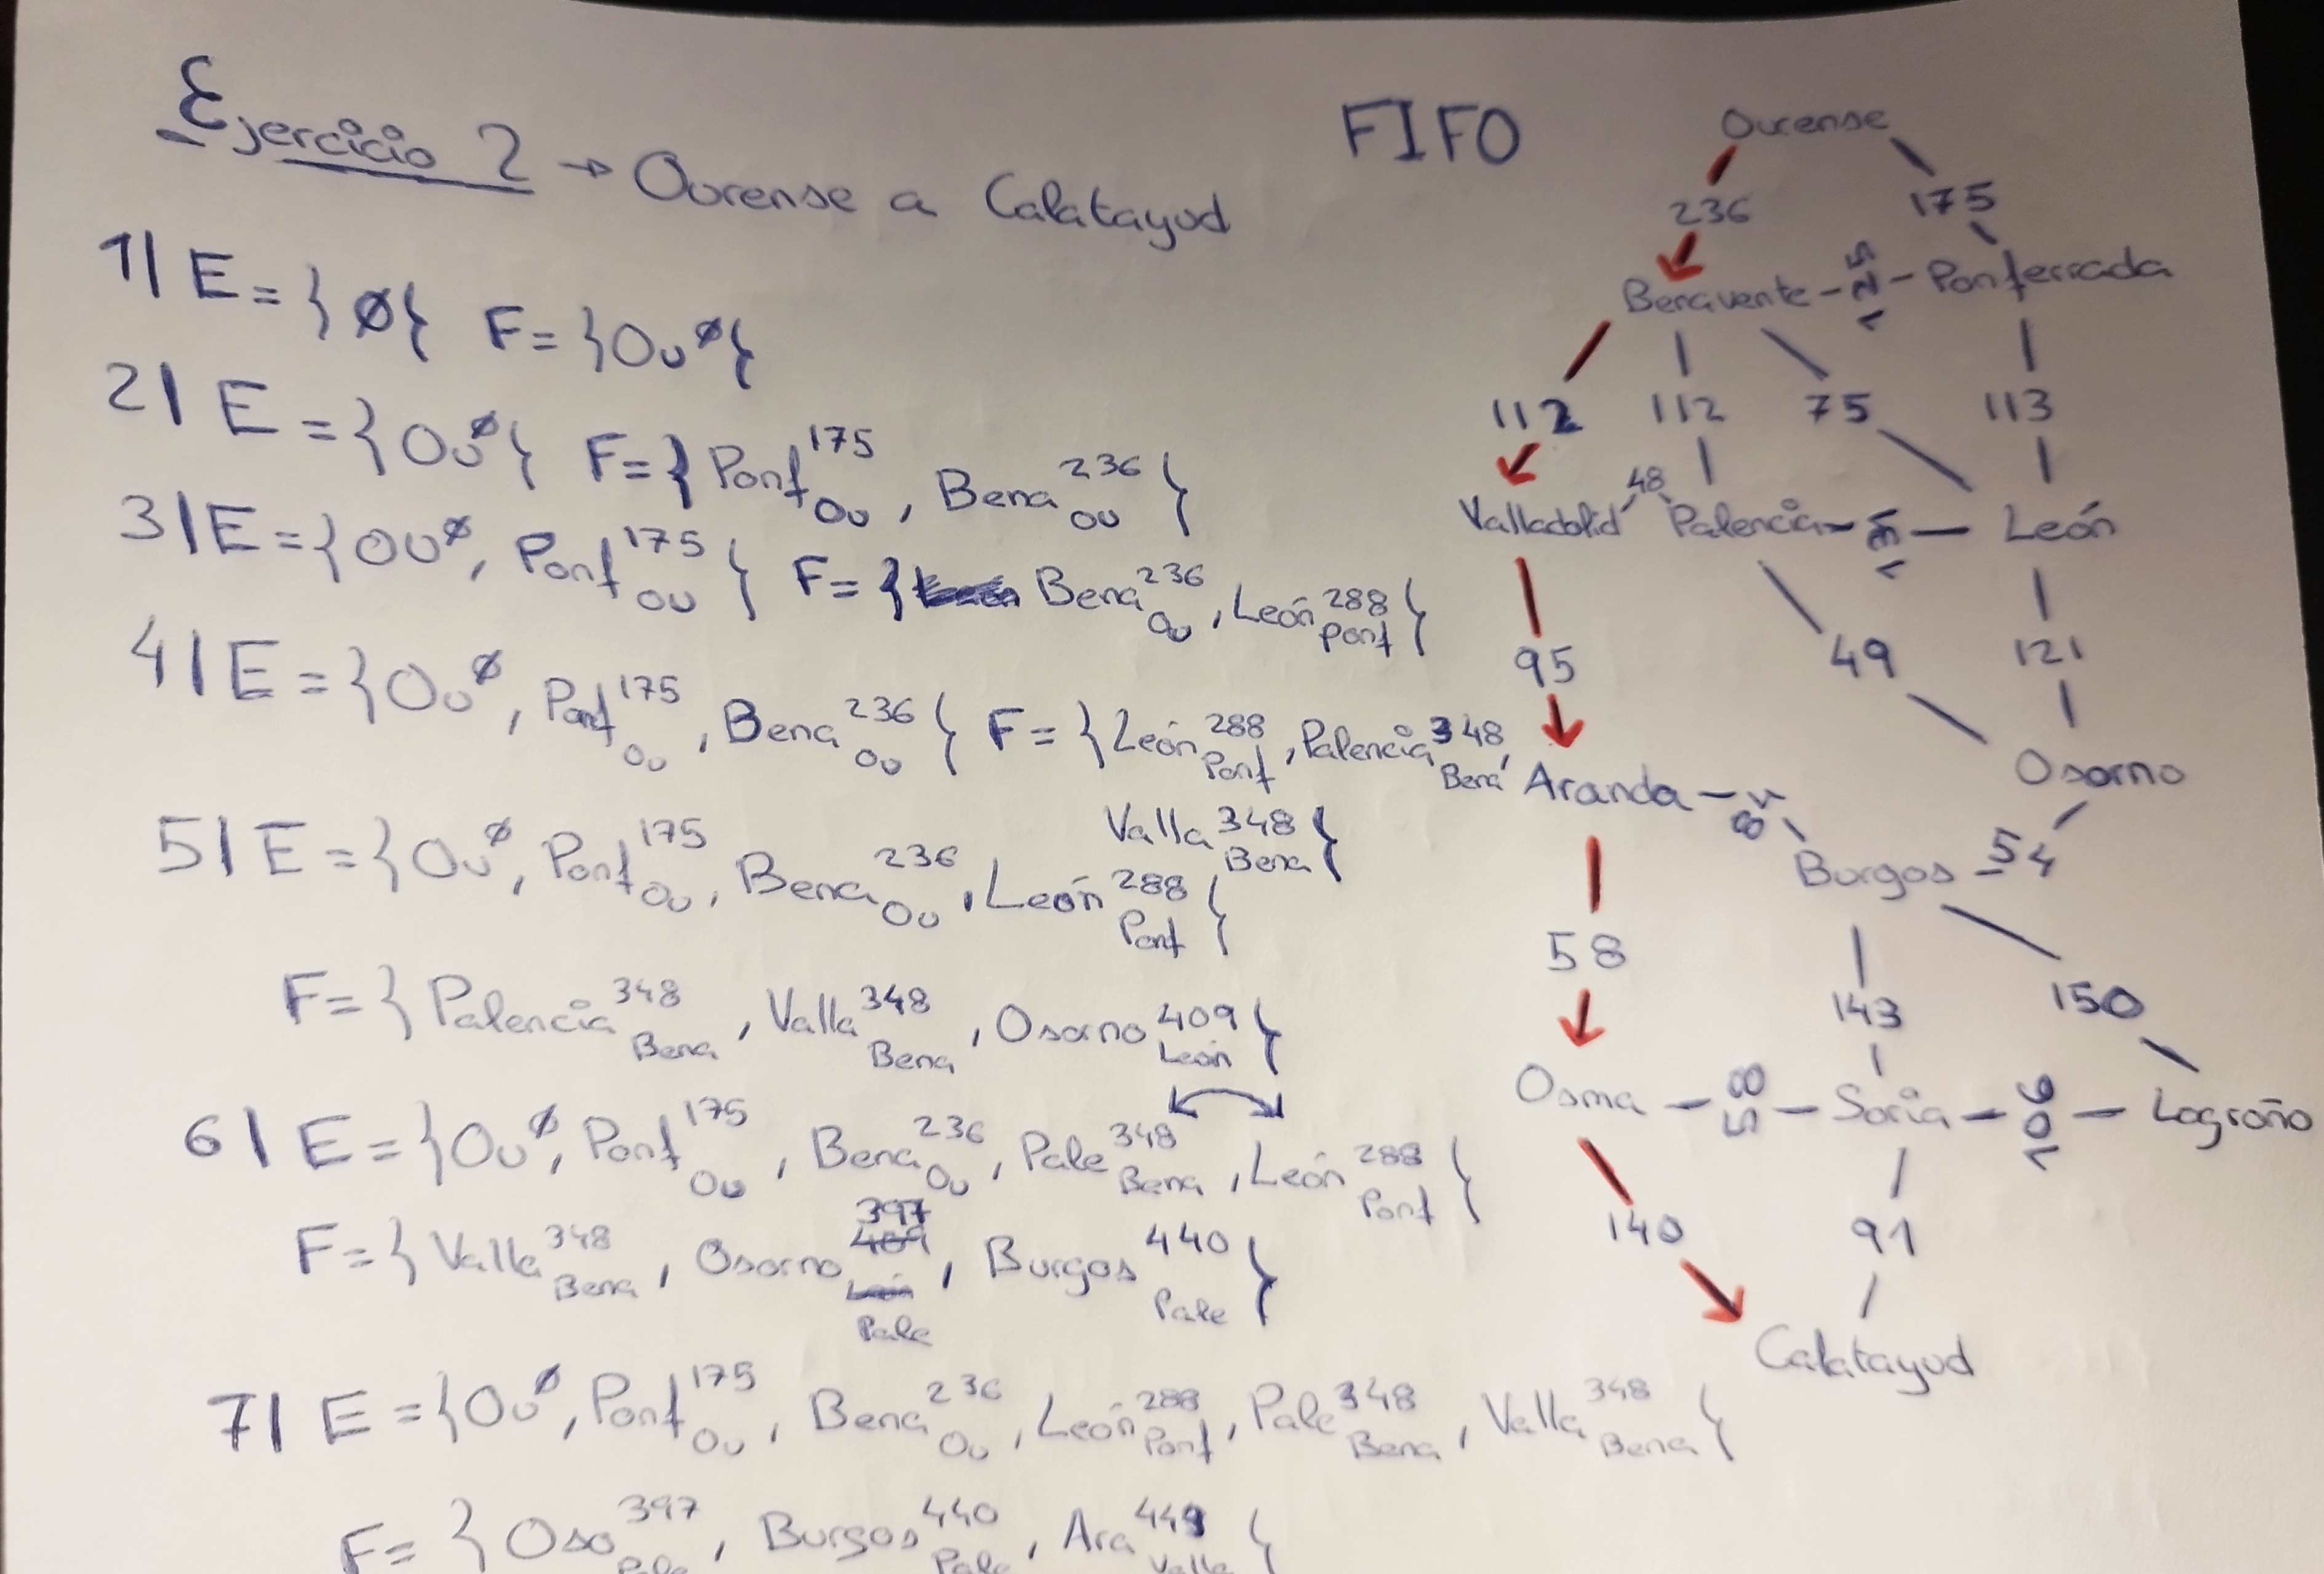 Ejercicio 2 → Ourense a Calatayud
FIFO
1| E = {Ø} F = {Ou Ø}
2| E = {Ou Ø} F = {Ponf 175 Ou, Bena 236 Ou}
3| E = {Ou Ø, Ponf 175 Ou} F = {Bena 236 Ou, León 288 Ponf}
4| E = {Ou Ø, Ponf 175 Ou, Bena 236 Ou} F = {León 288 Ponf, Palencia 348 Bena,
Valla 348 Bena}
5| E = {Ou Ø, Ponf 175 Ou, Bena 236 Ou, León 288 Ponf}
F = {Palencia 348 Bena, Valla 348 Bena, Osorno 409 León}
6| E = {Ou Ø, Ponf 175 Ou, Bena 236 Ou, Pale 348 Bena, León 288 Ponf}
F = {Valla 348 Bena, Osorno 397 409 León Pale, Burgos 440 Pale}
7| E = {Ou Ø, Ponf 175 Ou, Bena 236 Ou, León 288 Ponf, Pale 348 Bena, Valla 348 Bena}
F = {Oso 397 Pale, Burgos 440 Pale, Ara Valla}
Ourense
236 175
Benavente - 125 - Ponferrada
112 112 75 113
Valladolid 48 Palencia - 131 - León
95 49 121
Osorno
Aranda - 81
Burgos - 54
58 143 150
Osma - 58 - Soria - 106 - Logroño
140 91
Calatayud